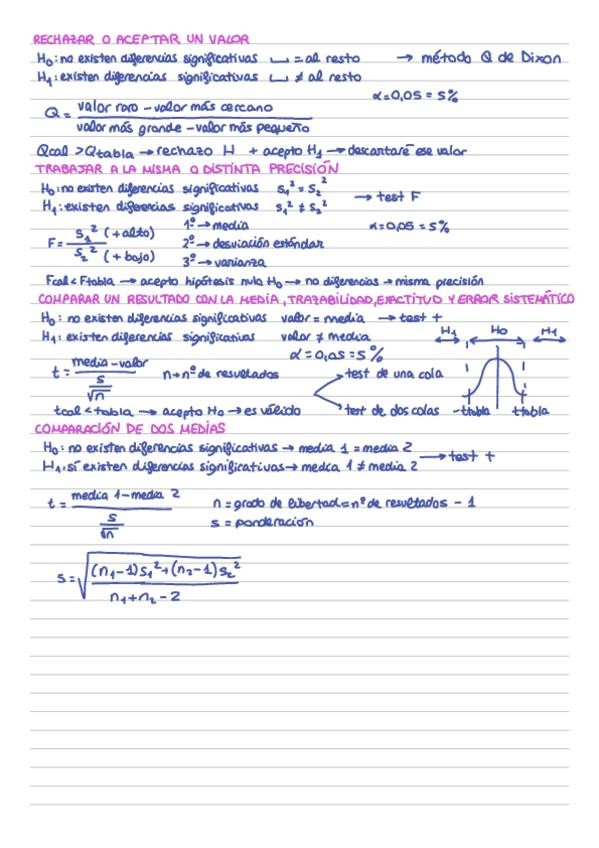 RECHAZAR O ACEPTAR UN VALOR
H₀: no existen diferencias significativas ⎵ = al resto → método Q de Dixon
H₁: existen diferencias significativas ⎵ ≠ al resto
α=0,05 = 5%
Q = valor raro - valor más cercano / valor más grande - valor más pequeño
Qcal > Qtabla → rechazo H + acepto H₁ → descartaré ese valor
TRABAJAR A LA MISMA O DISTINTA PRECISIÓN
H₀: no existen diferencias significativas s₁² = s₂²
H₁: existen diferencias significativas s₁² ≠ s₂² → test F
F = s₁² (+alto) / s₂² (+bajo)
1º → media α=0,05 = 5%
2º → desviación estándar
3º → varianza
Fcal < Ftabla → acepto hipótesis nula H₀ → no diferencias → misma precisión
COMPARAR UN RESULTADO CON LA MEDIA, TRAZABILIDAD, EXACTITUD Y ERROR SISTEMÁTICO
H₀: no existen diferencias significativas valor = media → test t
H₁: existen diferencias significativas valor ≠ media
H₁ H₀ H₁
α = 0,05 = 5%
t = media - valor / s/√n n → nº de resultados
test de una cola
test de dos colas
-ttabla ttabla
tcal < tabla → acepto H₀ → es válido
COMPARACIÓN DE DOS MEDIAS
H₀: no existen diferencias significativas → media 1 = media 2
H₁: sí existen diferencias significativas → media 1 ≠ media 2 → test t
t = media 1 - media 2 / s/√n
n = grado de libertad = nº de resultados - 1
s = ponderación
s = √((n₁-1)s₁² + (n₂-1)s₂² / n₁+n₂-2)